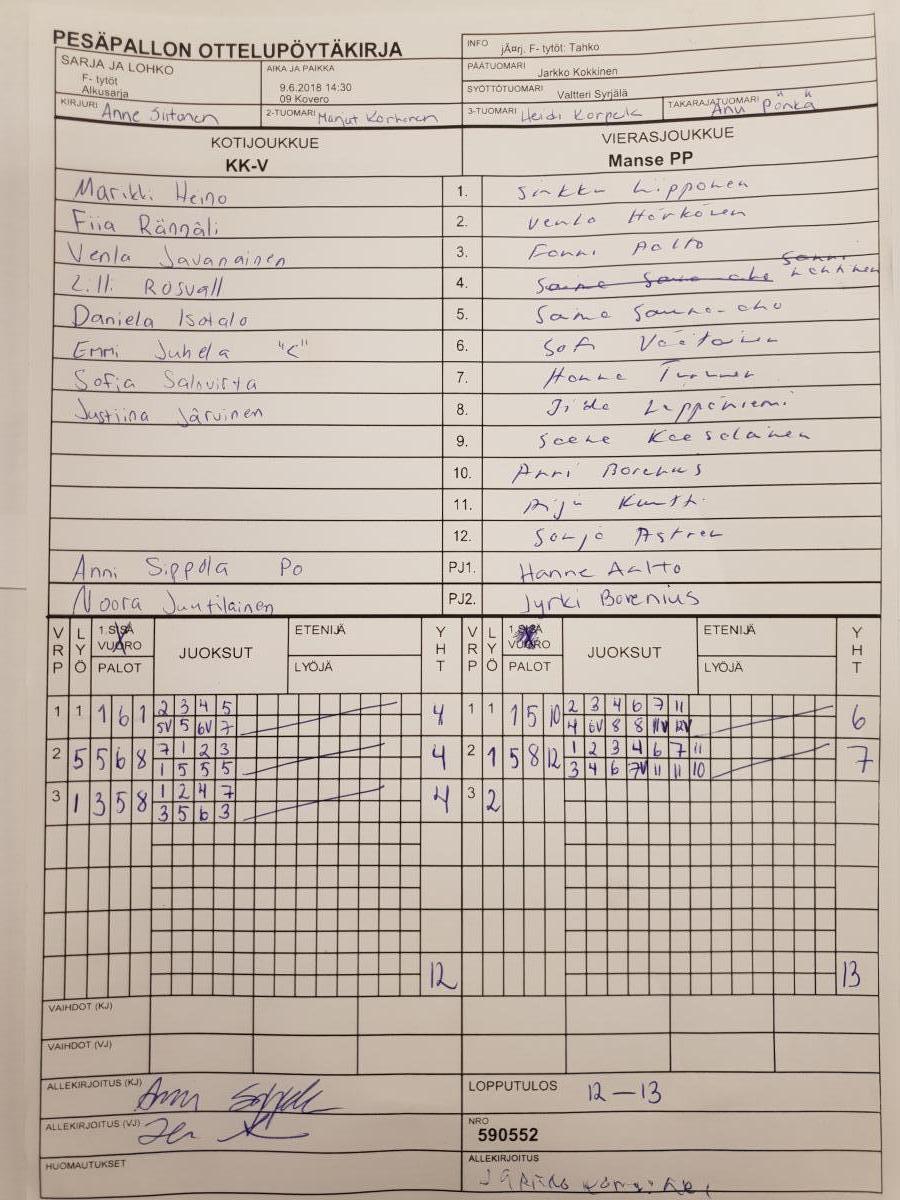 PESÄPALLON OTTELUPÖYTÄKIRJA
SARJA JA LOHKO
F- tytöt
Alkusarja
AIKA JA PAIKKA
9.6.2018 14:30
09 Kovero
INFO jÃ¤rj. F- tytöt: Tahko
PÄÄTUOMARI Jarkko Kokkinen
SYÖTTÖTUOMARI Valtteri Syrjälä
KIRJURI Anne Siitonen
2-TUOMARI Korhonen
3-TUOMARI Heidi
TAKARAJATUOMARI Anu Pönkä
KOTIJOUKKUE
KK-V
VIERASJOUKKUE
Manse PP
Marikki Heino 1. Lipponen
Fiia Rännäli 2. Venla Hörkönen
Venla Javanainen 3. Fanni Aalto
Lilli Rosvall 4. Sanni Lehtinen
Daniela Isotalo 5.
Emmi Juhela "C" 6. Sofi Väätäinen
Sofia Salovirta 7.
Justiina Järvinen 8. Iida Leppäniemi
9.
10. Anni Borenius
11.
12. Sonja Astren
Anni Sippola PO PJ1. Hanne Aalto
Noora Juutilainen PJ2. Jyrki Borenius
VRP LYÖ 1.SISÄ VUORO PALOT JUOKSUT ETENIJÄ LYÖJÄ YHT VRP LYÖ 1.SISÄ VUORO PALOT JUOKSUT ETENIJÄ LYÖJÄ YHT
1 1 1 6 1 2 3 4 5 4 1 1 1 5 10 2 3 4 6 7 11 6
5V 5 6V 7 4 6V 8 8 11V 12V
2 5 5 6 8 7 1 2 3 4 2 1 5 8 12 1 2 3 4 6 7 11 7
1 5 5 5 3 4 6 7V 11 11 10
3 1 3 5 8 1 2 4 7 4 3 2
3 5 6 3
12 13
VAIHDOT (KJ)
VAIHDOT (VJ)
ALLEKIRJOITUS (KJ)
LOPPUTULOS 12-13
ALLEKIRJOITUS (VJ)
NRO
590552
HUOMAUTUKSET
ALLEKIRJOITUS